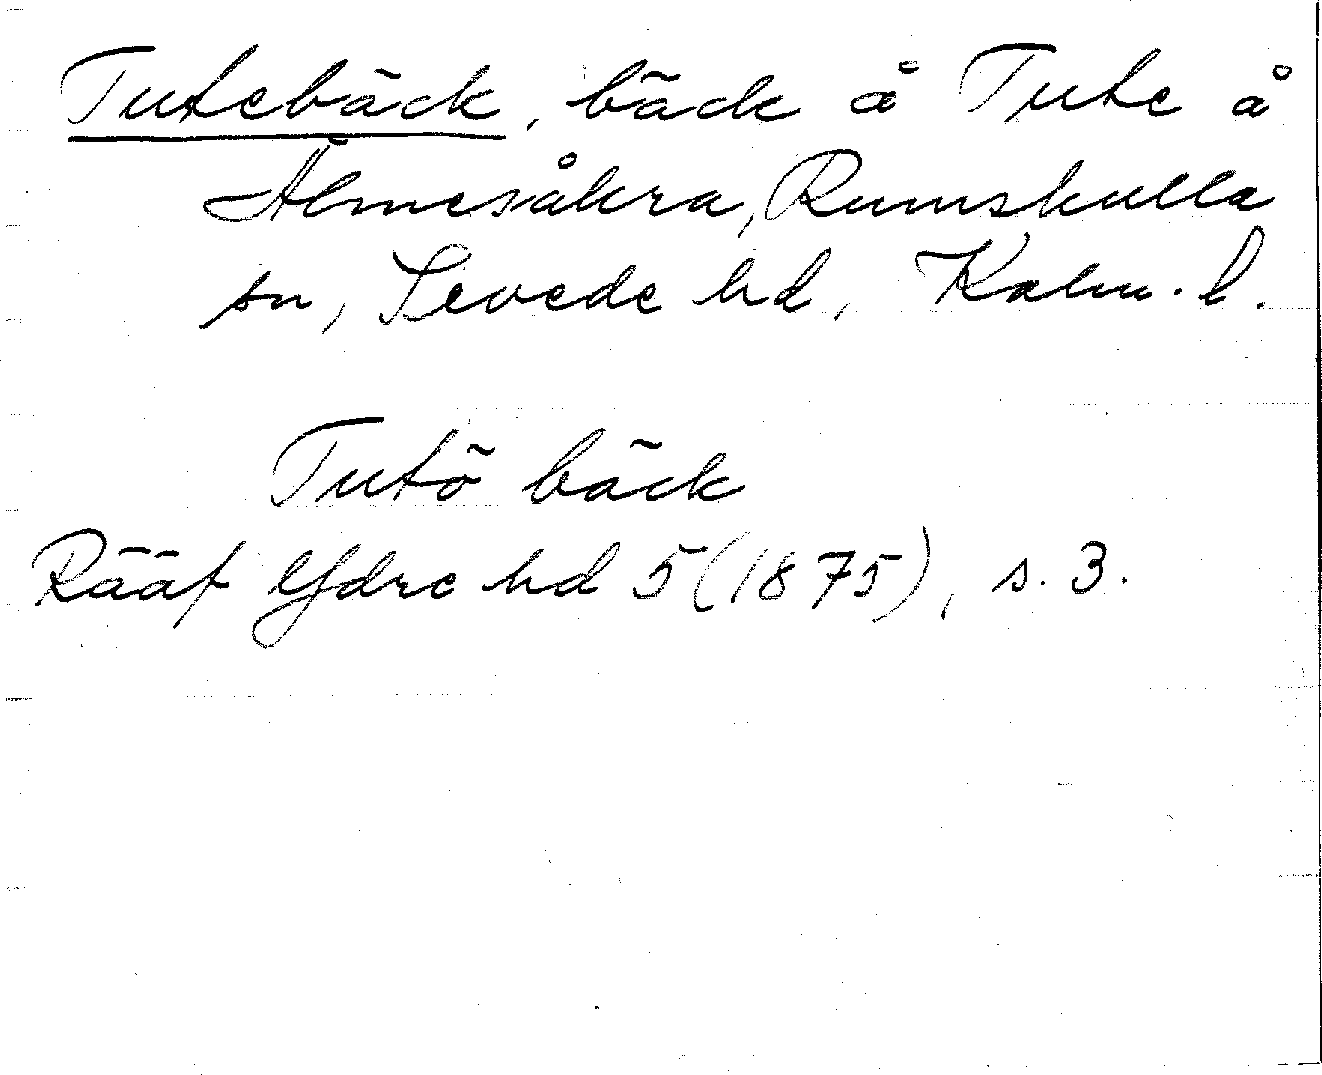 Tutebäck, bäck å Tute å
Älmesåkra, Rumskulla
sn, Sevede hd, Kalm. l.
Tutö bäck
Rääf Ydre hd 5 (1875), s. 3.